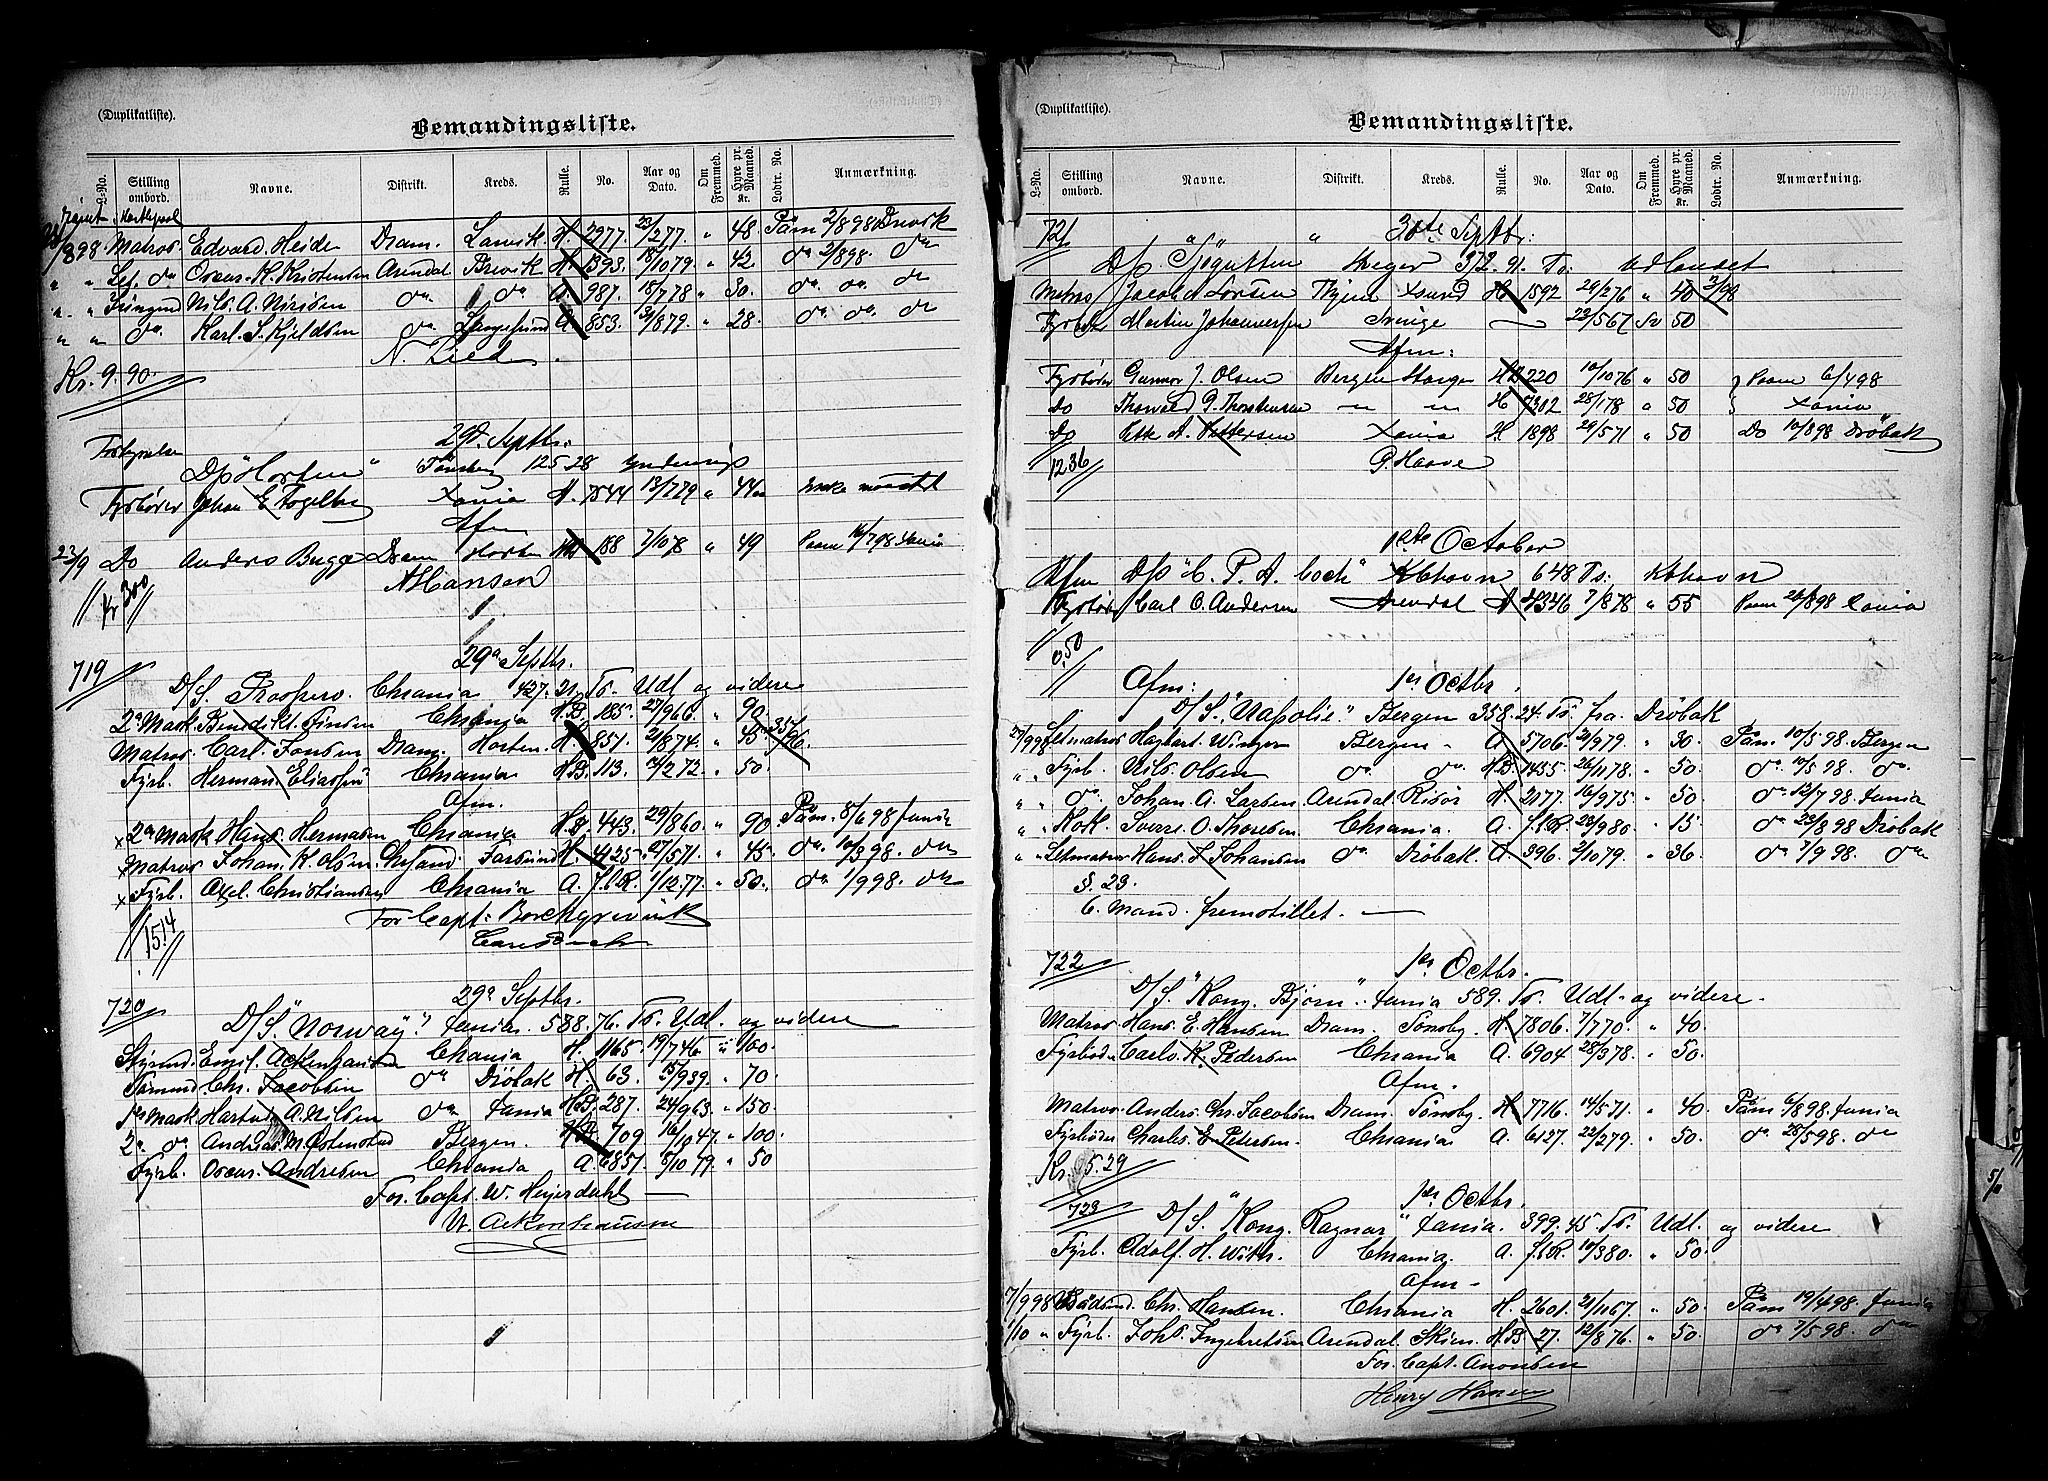 (Duplikatliste).
Bemandingsliste.
L-No. Stilling ombord. Navne. Distrikt. Kreds. Rulle. No. Aar og Dato. Om Fremmed. Hyre pr. Maaned. Kr. Lodtr. No. Anmærkning.
Hartlepool
/898 Matros Edvard Heide Dram. Larvik H. 2977 23/277 " 48 Påm 2/898 Brevik
" " Let. do Oscar H. Kristensen Arendal Brevik H. 1393. 18/1079. " 42 do 2/898. do
" " Jungmd Nils A. Nirisen do do A. 987. 18/778 " 30. do do do
" " do. Karl. S. Kjeldsen do Langesund A. 853. 31/879. " 28. do do do
N. Lied
Kr. 9.90.
29d. Septbr.
D/S "Horten" Tønsberg 125 28
Fyrbøder Johan E Fogelberg Xania H. 7844 13/779 " 44 Ikke mønstret
Afm
23/9 Do Anders Bugge Dram Horten HB 188 7/1078 " 49 Paam 16/798 Xania
A Hansen
Kr 3.00
719 29d Septbr.
D/S. Prospero. Chrania 427. 21. Ts. Udl og videre
2d Mask. Bendikt. Jensen Chrania H.B. 185. 27/966. " 90
Matros Carl. Jonsen Dram. Horten. H. 851. 21/874. " 45
Fyrb. Herman. Eliassen Chrania H.B. 113. 12/272. " 50.
Afm.
x 2d Mask Hans. Hermansen Chrania H.B. 443. 29/860. " 90. Påm. 8/698 Xania
x Matros Johan. K. Olsen. Chrsand. Farsund H. 4425. 27/571. " 45. do. 10/398. do
x Fyrb. Axel. Christiansen Chrania A. f.l.R. 1/1277. " 50. do. 1/998. do
For Capt: Borchgrevink
15.14
720 29d Septbr.
D/S "Norway" Xania. 588.76. Ts. Udl. og videre
Styrmd. Emil. Ackenhausen Chrania H. 1165. 19/746 " 100.
Tømmd. Chr. Jacobsen do Drøbak H. 63. 15/939. " 70.
1ste Mask Hartvig A. Nilsen do Xania H.B. 287. 24/963. " 150.
2d do. Andreas M. Ostenstad Bergen. H.B. 709 16/1047. " 100.
Fyrb. Oscar. Andresen Chrania A. 6851. 5/1079. " 50
For. Capt. W. Heyerdahl
W. Ackenhausen
(Duplikatliste).
Bemandingsliste.
L-No. Stilling ombord. Navne. Distrikt. Kreds. Rulle. No. Aar og Dato. Om Fremmed. Hyre pr. Maaned. Kr. Lodtr. No. Anmærkning.
721 30te Septbr:
D/S "Sjøgutten" 372. 91. Ts: Udlandet
Matros Jacob A Larsen Xsund H 1592 29/276 " 40
Fyrb Martin Johannessen Sverige — 23/567 Sv 50
Afm:
Fyrbøder Gunnar J. Olsen Bergen Stangen HB 220 10/1076 " 50 Paam 6/498
Do Thorvald G. Thorstensen " " H 7302 28/178 " 50 Xania
Do A. Pettersen Xania H. 1898 29/571 " 50 Do 10/898 Drøbak
12 36 P. Haave
1ste October
Afm D/S "C. P. A. Koch" Kbhavn 648 Ts: Kbhavn
Fyrbøder Carl O. Andersen Arendal A 4346 7/878 " 55 Paam 26/898 Xania
0.50
Afm: 1ste Octbr.
D/S. "Napolie." Bergen 358.24. Ts. fra Drøbak
27/998 Letmatros Hagbart. Winger Bergen. A. 5706. 21/979. " 30 Påm. 10/598. Bergen
" " Fyrb. Nils. Olsen do do. H.B. 1455. 26/1178. " 50. do 10/598. do.
" " do. Johan. A. Larsen. Arendal. Risør H. 2177. 16/975. " 50. do 12/798. Xania
" " Kok. Sverre. O. Thoresen. Chrania. A. f.l.R. 28/980. " 15. do 23/898 Drøbak
" " Letmatros Hans. J. Johansen do Drøbak. A. 396. 2/1079. " 36 do 7/998. do
§. 23.
6. Mand. fremstillet. —
722 1ste Octbr.
D/S. "Kong. Bjørn". Xania 589. Ts. Udl. og videre.
Matros Hans. E. Hansen Dram. Tønsbg. H. 7806. 7/770. " 40.
Fyrbøder Carl. K. Pedersen Chrania A. 6904 28/378. " 50.
Afm.
Matros. Anders. Chr. Jacobsen Dram. Tønsbg. H 7716. 14/571. " 40. Påm 6/898. Xania
Fyrbøder Charles. E. Petersen. Chrania A. 6127. 22/279. " 50. do 28/598. do
Kr. 5.29
723 1ste Octbr.
D/S "Kong. Ragnar" Xania. 399.45 Ts. Udl. og videre
Fyrb. Adolf. H. With. Chrania. A. f.l.R. 10/380. " 50.
Afm -
7/998 Baadsmd. Chr. Hansen. Chrania H. 2601. 21/1167. " 50. Påm 19/498. Xania
1/10 " Fyrb. Johs. Ingebretsen Arendal Skien H.B 27. 12/876. " 50. do 7/598. do
For. Capt. Anonsen
Henry Hansen